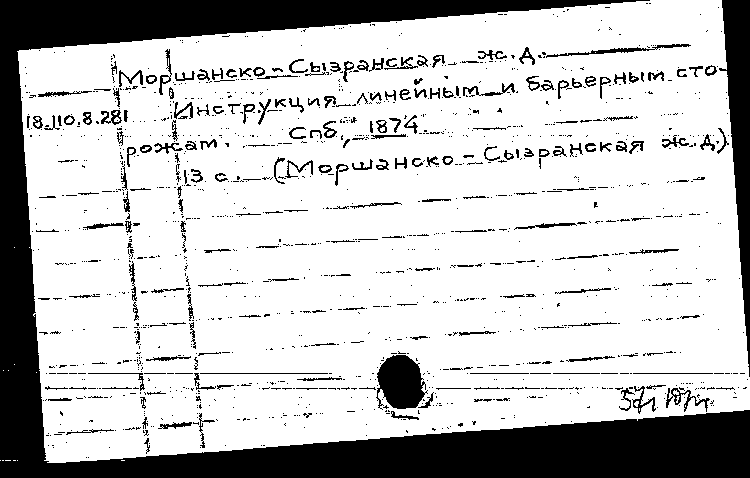 Моршанско-Сызранская ж.д.
18.110.8.281 Инструкция линейным и барьерным сто-
рожам. Спб., 1874.
13 с. (Моршанско-Сызранская ж.д.)